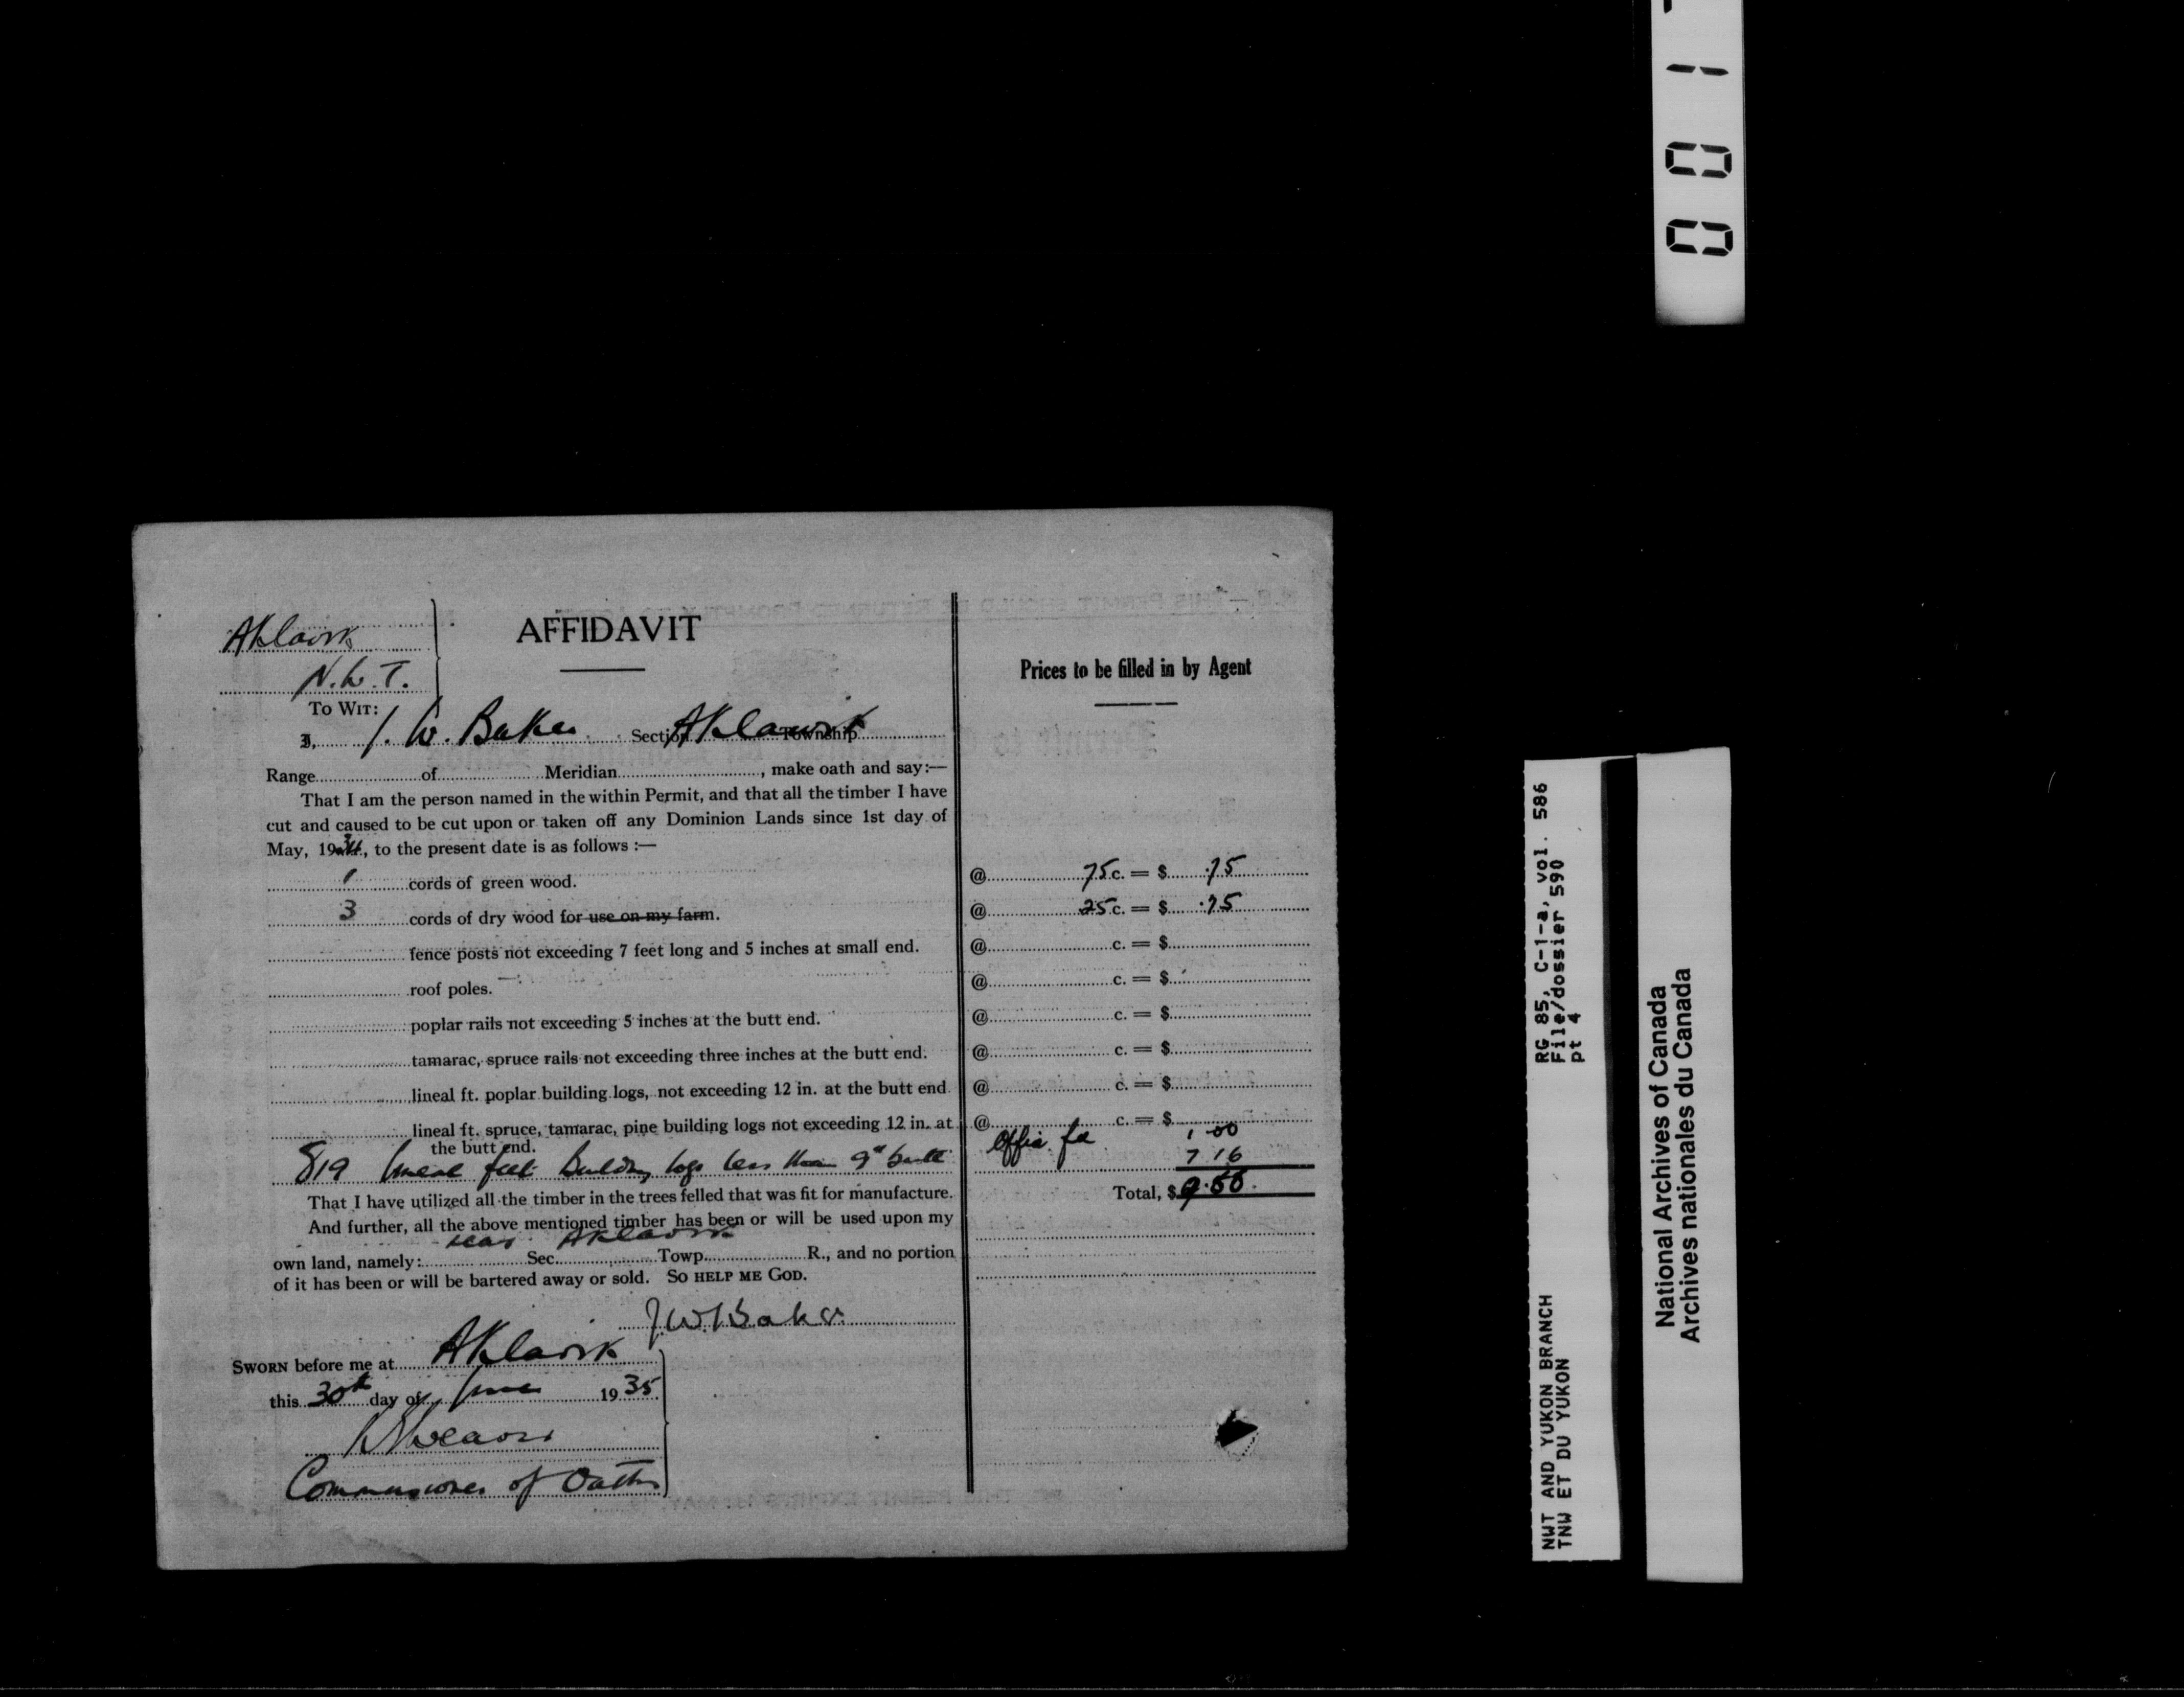 Aklavik
N.W.T.
AFFIDAVIT
Prices to be filled in by Agent
To Wit:
I, J. W. Baker Section Aklavik Township
Range of Meridian , make oath and say:—
That I am the person named in the within Permit, and that all the timber I have
cut and caused to be cut upon or taken off any Dominion Lands since 1st day of
May, 1934, to the present date is as follows :—
1 cords of green wood. @ 75c. = $ .75
3 cords of dry wood for use on my farm. @ 25c. = $ .75
fence posts not exceeding 7 feet long and 5 inches at small end. @ c. = $
roof poles. @ c. = $
poplar rails not exceeding 5 inches at the butt end. @ c. = $
tamarac, spruce rails not exceeding three inches at the butt end. @ c. = $
lineal ft. poplar building logs, not exceeding 12 in. at the butt end @ c. = $
lineal ft. spruce, tamarac, pine building logs not exceeding 12 in. at @ c. = $
the butt end. Office fee 1 00
819 lineal feet Building logs less than 9" butt 7 16
That I have utilized all the timber in the trees felled that was fit for manufacture. Total, $
And further, all the above mentioned timber has been or will be used upon my
near Aklavik
own land, namely: Sec. Towp. R., and no portion
of it has been or will be bartered away or sold. So help me God.
J.W. Baker
Sworn before me at Aklavik
this 30th day of June 1935
Commissioner of Oaths
001
RG 85, C-1-a, vol. 586
File/dossier 590
pt 4
NWT AND YUKON BRANCH
TNW ET DU YUKON
National Archives of Canada
Archives nationales du Canada